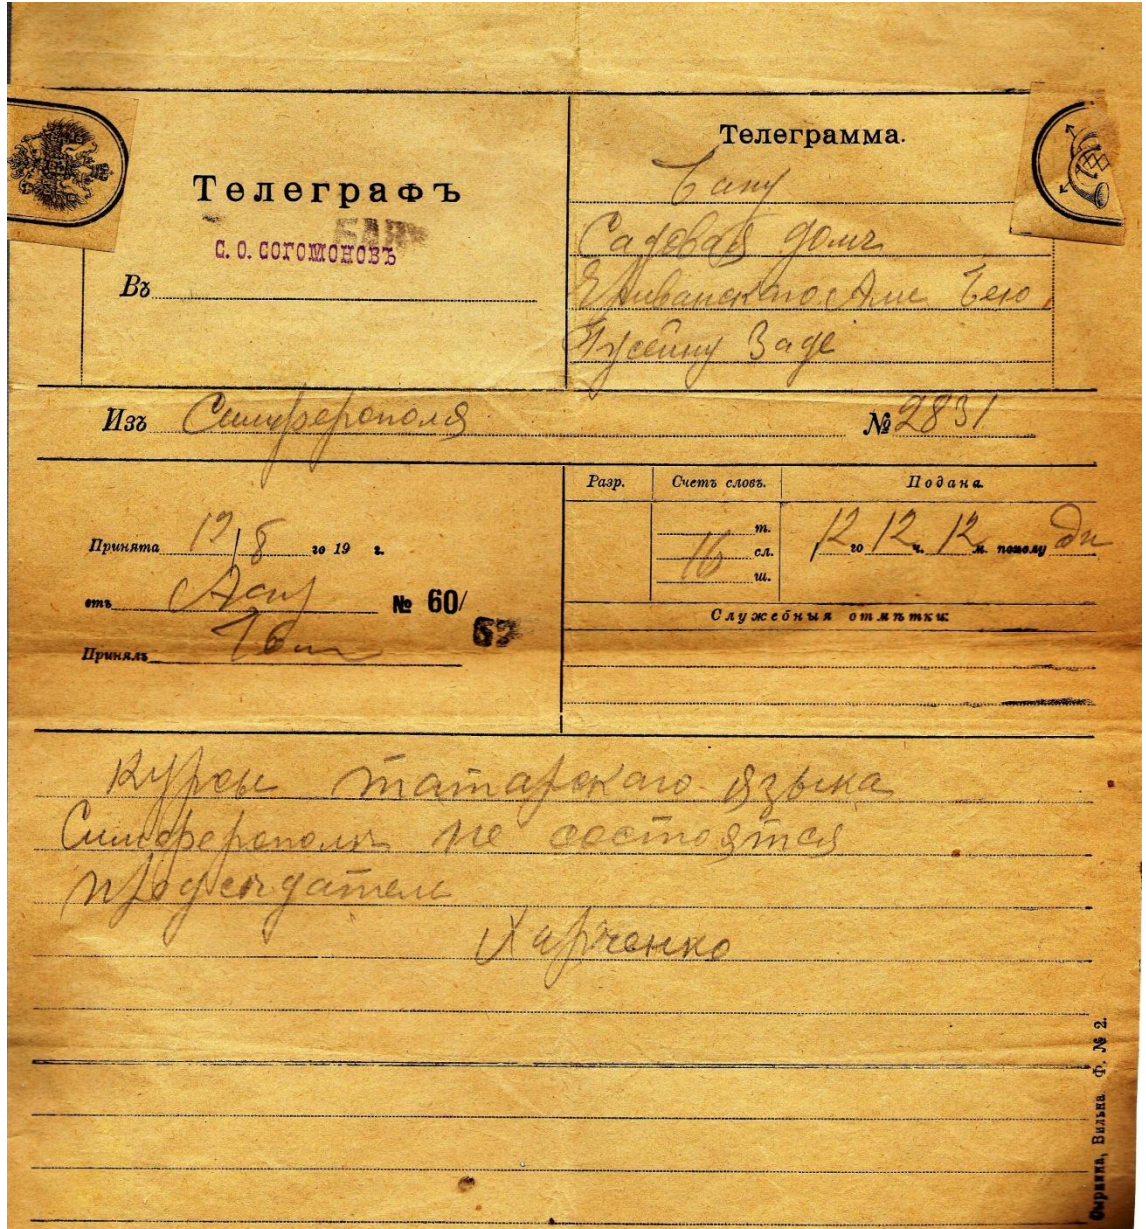 Телеграфъ
БАКУ
С. О. СОГОМОНОВЪ
Въ
Телеграмма.
Баку
Садовая домъ
Ериванскаго Али Бею
Гусейну Заде
Изъ Симферополя № 2831
Принята 12/8 го 19 г.
отъ № 60/
Принялъ
Разр. Счетъ словъ. Подана
16 т. сл. ш.
12 го 12 ч. 12 м. пополу дн
Служебныя отмѣтки:
курсы татарскаго языка
Симферополь не состоятся
предсѣдатель
Харченко
Вильна Ф. № 2.